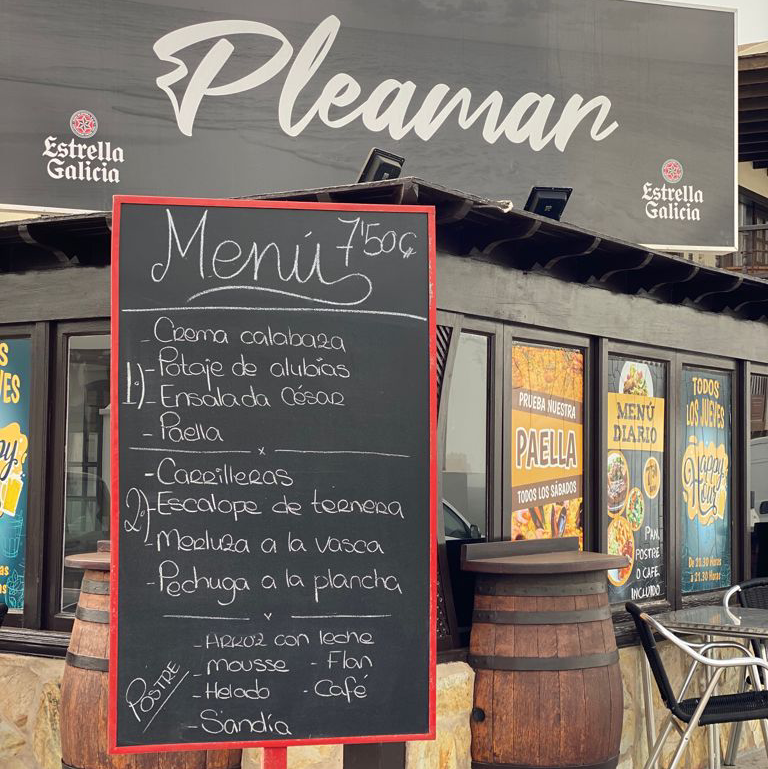 Pleamar
Estrella
Galicia
Estrella
Galicia
Menú 7'50€
- Crema calabaza
1) - Potaje de alubias
- Ensalada César
- Paella
x
- Carrilleras
2) - Escalope de ternera
- Merluza a la vasca
- Pechuga a la plancha
- Arroz con leche
- mousse - Flan
POSTRE - Helado - Café
- Sandía
PRUEBA NUESTRA
PAELLA
TODOS LOS SÁBADOS
MENÚ
DIARIO
PAN,
POSTRE
O CAFÉ
INCLUIDO
TODOS
LOS JUEVES
Happy
Hour
De 20.30 horas
a 21.30 horas